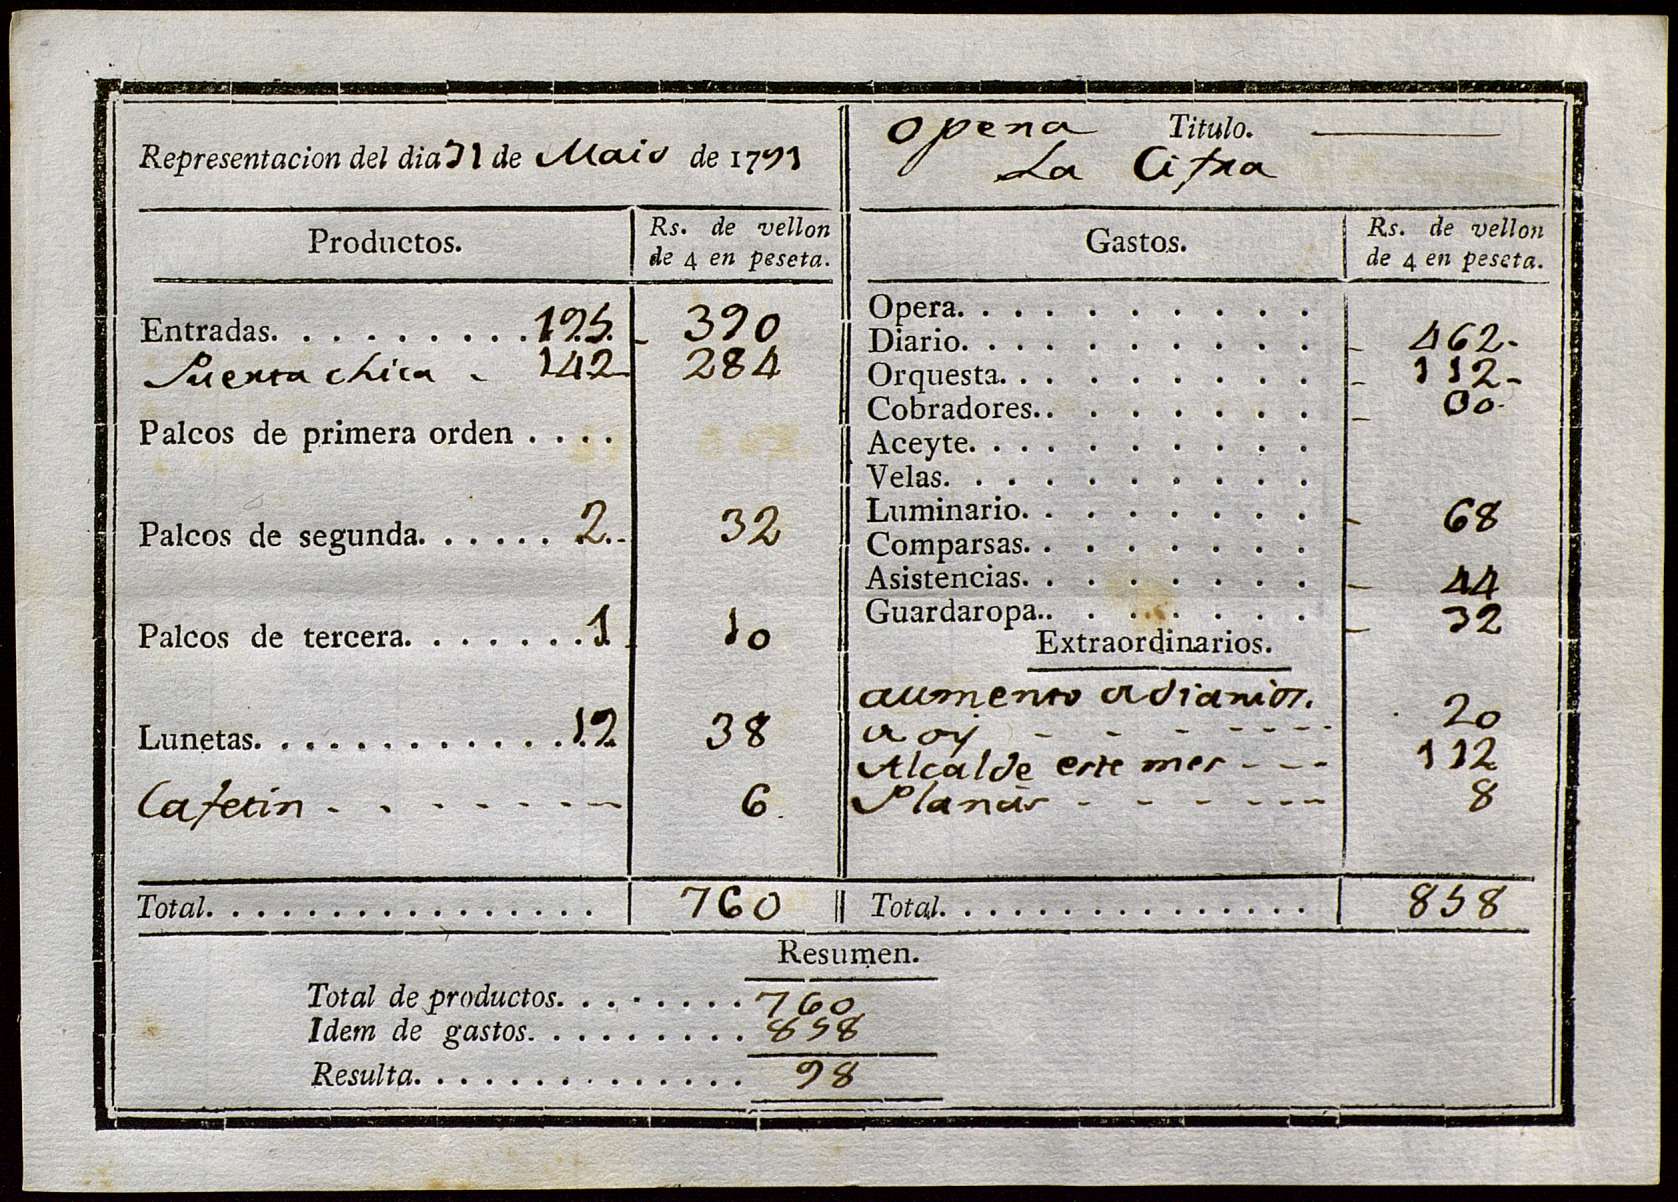 Representacion del dia 31 de Maio de 1791
Opera Titulo.
La Cifra
Productos. Rs. de vellon de 4 en peseta.
Entradas. . . . . . . . . . 195. 390
Puerta chica - 142 284
Palcos de primera orden . . . .
Palcos de segunda. . . . . . 2. 32
Palcos de tercera. . . . . . . 1 10
Lunetas. . . . . . . . . . . . . 19 38
Cafetin - - - - - - - - 6
Total. . . . . . . . . . . . . . . . 760
Gastos. Rs. de vellon de 4 en peseta.
Opera. . . . . . . . . . .
Diario. . . . . . . . . . . 462-
Orquesta. . . . . . . . . . 112-
Cobradores. . . . . . . . . 00-
Aceyte. . . . . . . . . . .
Velas. . . . . . . . . . .
Luminario. . . . . . . . . 68
Comparsas. . . . . . . . .
Asistencias. . . . . . . . 44
Guardaropa. . . . . . . . 32
Extraordinarios.
aumento a diarios.
a oy - - - - - - - - 20
Alcalde este mes - - - 112
Planas - - - - - - - 8
Total. . . . . . . . . . . . . . . . 858
Resumen.
Total de productos. . . . . . . . 760
Idem de gastos. . . . . . . . . 858
Resulta. . . . . . . . . . . . . . 98